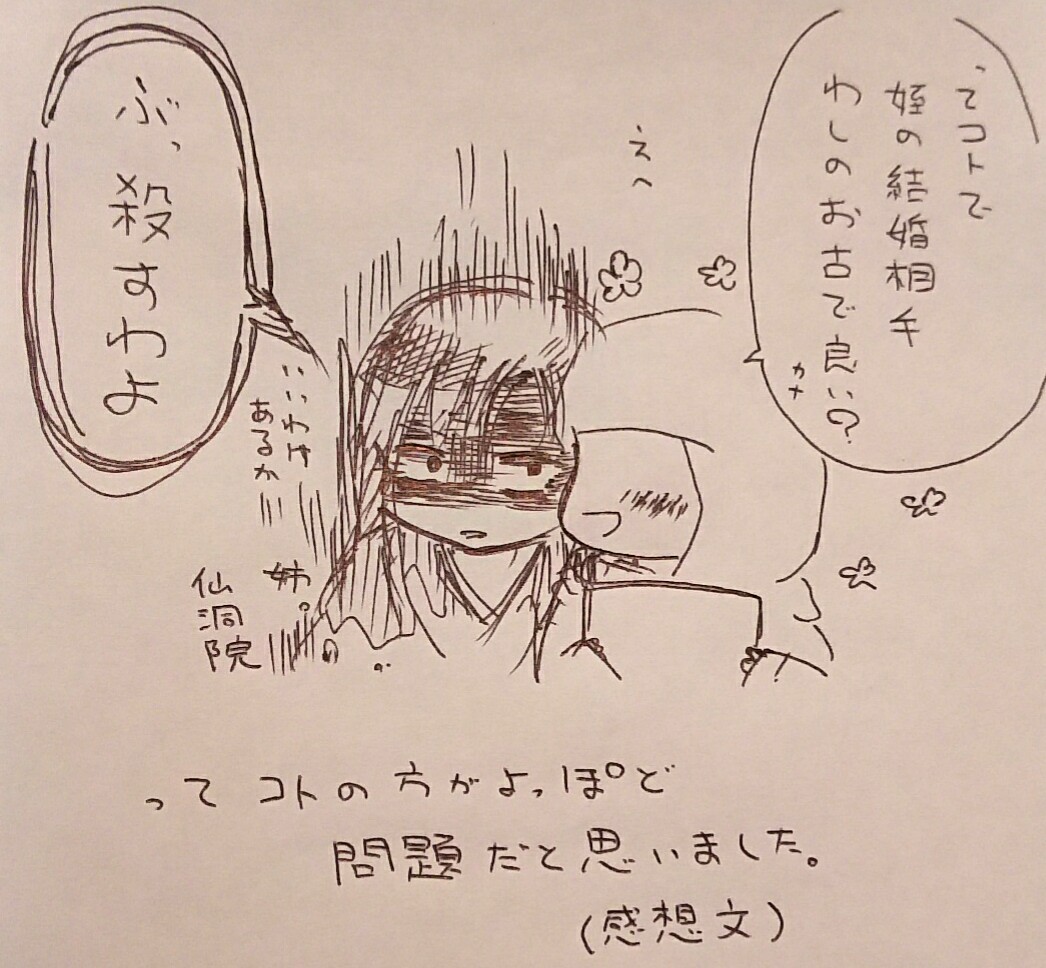 ってコトで
姪の結婚相手
わしのお古で良い?
カナ
えへ
ぶっ殺すわよ
いいわけ
あるか
姉。
仙洞院
ってコトの方がよっぽど
問題だと思いました。
(感想文)